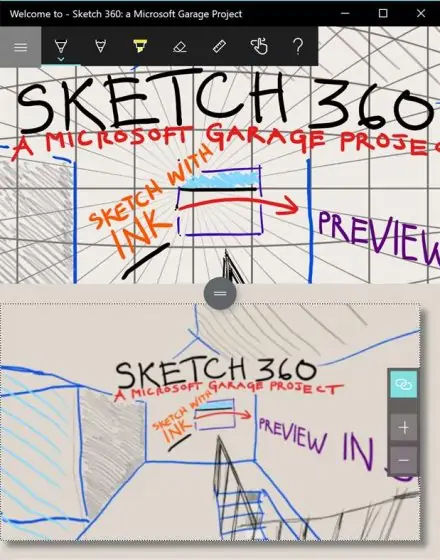 Welcome to - Sketch 360: a Microsoft Garage Project
SKETCH 360
A MICROSOFT GARAGE PROJEC
SKETCH WITH
INK
PREVIEW
SKETCH 360
A MICROSOFT GARAGE PROJECT
SKETCH WITH
INK
PREVIEW IN